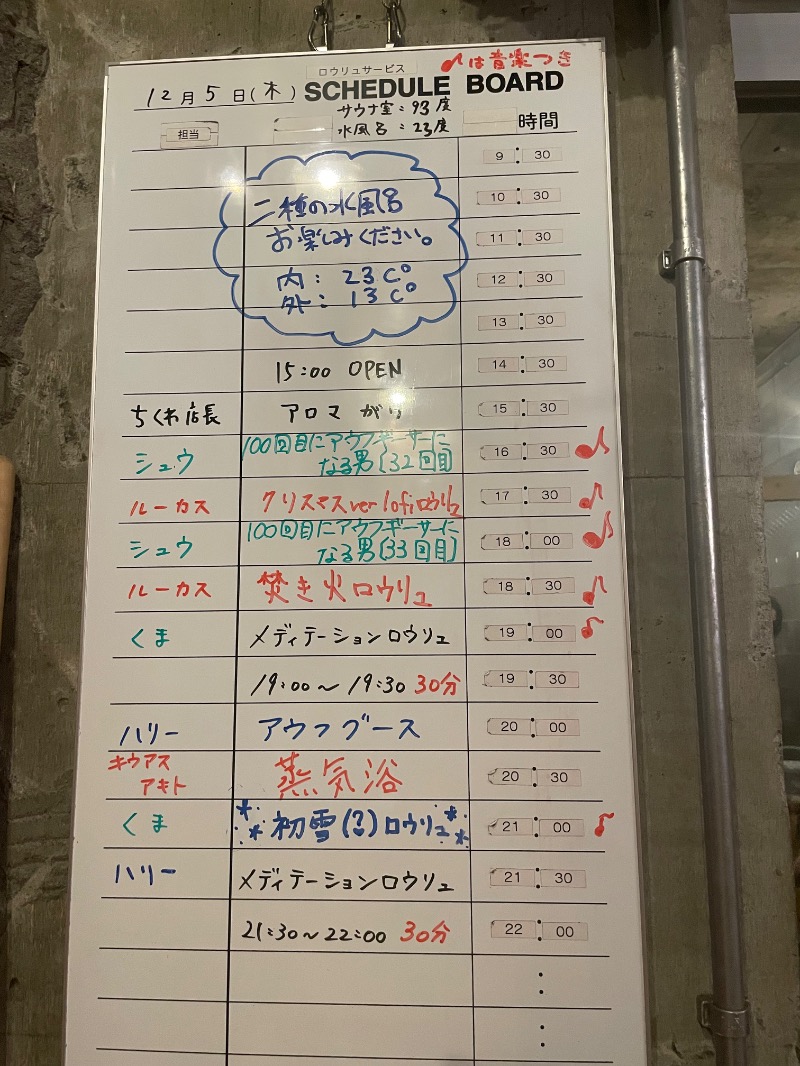 ロウリュサービス ♪は音楽つき
12月5日(木) SCHEDULE BOARD
サウナ室:93度
水風呂:23度
担当 時間
9:30
二種の水風呂 10:30
お楽しみください。 11:30
内:23C° 12:30
外:13C°
13:30
15:00 OPEN 14:30
ちくわ店長 アロマ 15:30
シュウ 100回目にアウフギーサーに
なる男〔32回目〕 16:30 ♪
ルーカス クリスマスver lofiロウリュ 17:30 ♪
シュウ 100回目にアウフギーサーに
なる男〔33回目〕 18:00 ♪
ルーカス 焚き火ロウリュ 18:30 ♪
くま メディテーションロウリュ 19:00 ♪
19:00~19:30 30分 19:30
ハリー アウフグース 20:00
キウアス
アキト 蒸気浴 20:30
くま 初雪(?)ロウリュ 21:00 ♪
ハリー メディテーションロウリュ 21:30
21:30~22:00 30分 22:00
:
: